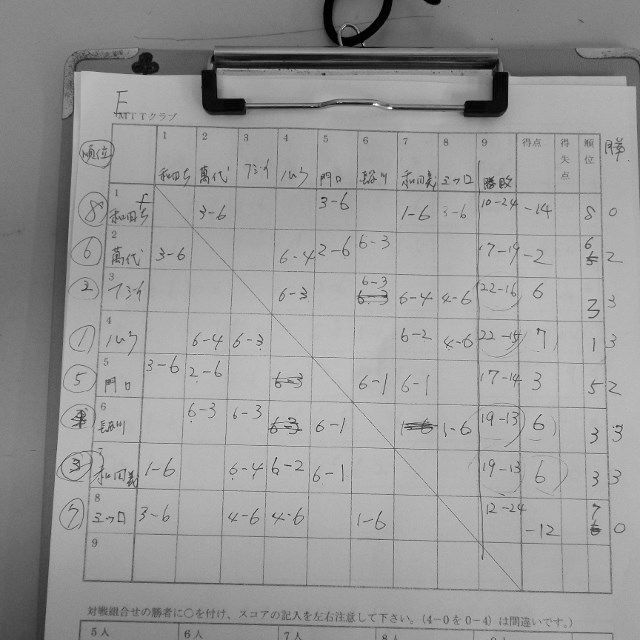 E
MTTクラブ
1 2 3 4 5 6 7 8 9 得点 得失点 順位 勝
順位 萬代 フジイ 門口 長谷川 和田義 勝敗
⑧ 1 3-6 3-6 1-6 3-6 10-24 -14 8 0
⑥ 2 萬代 3-6 6-4 2-6 6-3 17-19 -2 6 2
② 3 フジイ 6-3 6-3 6-4 4-6 22-16 6 2 3
① 4 6-4 6-3 6-2 4-6 22-15 7 1 3
⑤ 5 門口 3-6 2-6 6-3 6-1 6-1 17-14 3 5 2
④ 6 長谷川 6-3 6-3 6-3 6-1 1-6 1-6 19-13 6 3 3
③ 7 和田義 1-6 6-4 6-2 6-1 19-13 6 3 3
⑦ 8 3-6 4-6 4-6 1-6 12-24 -12 7 0
9
対戦組合せの勝者に○を付け、スコアの記入を左右注意して下さい。(4-0を0-4)は間違いです。)
5人 6人 7人 8人